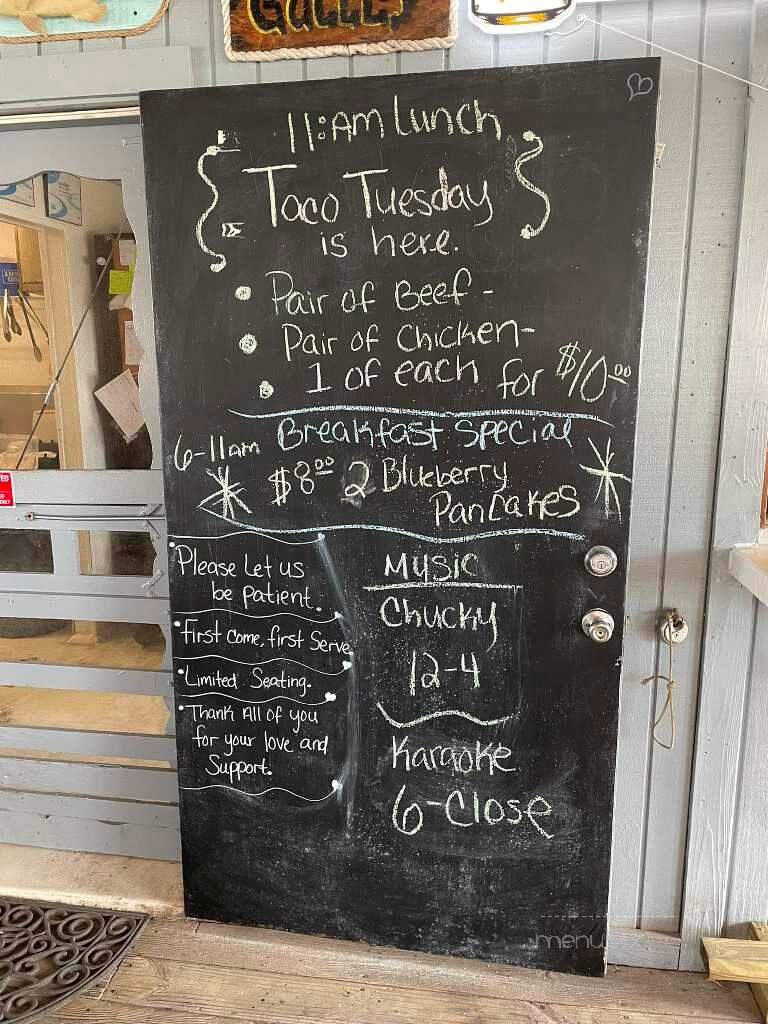 Galley
11:AM Lunch
Taco Tuesday
is here.
Pair of Beef -
Pair of Chicken -
1 of each for $10.00
6-11am Breakfast Special
$8.00 2 Blueberry
Pancakes
Please Let us
be patient.
First come, first Serve
Limited Seating.
Thank All of you
for your love and
Support.
Music
Chucky
12-4
Karaoke
6-Close
menu